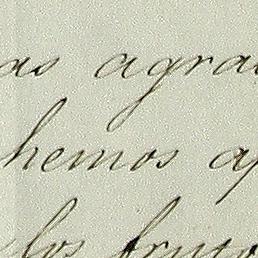 as agra
hemos a
los fruto